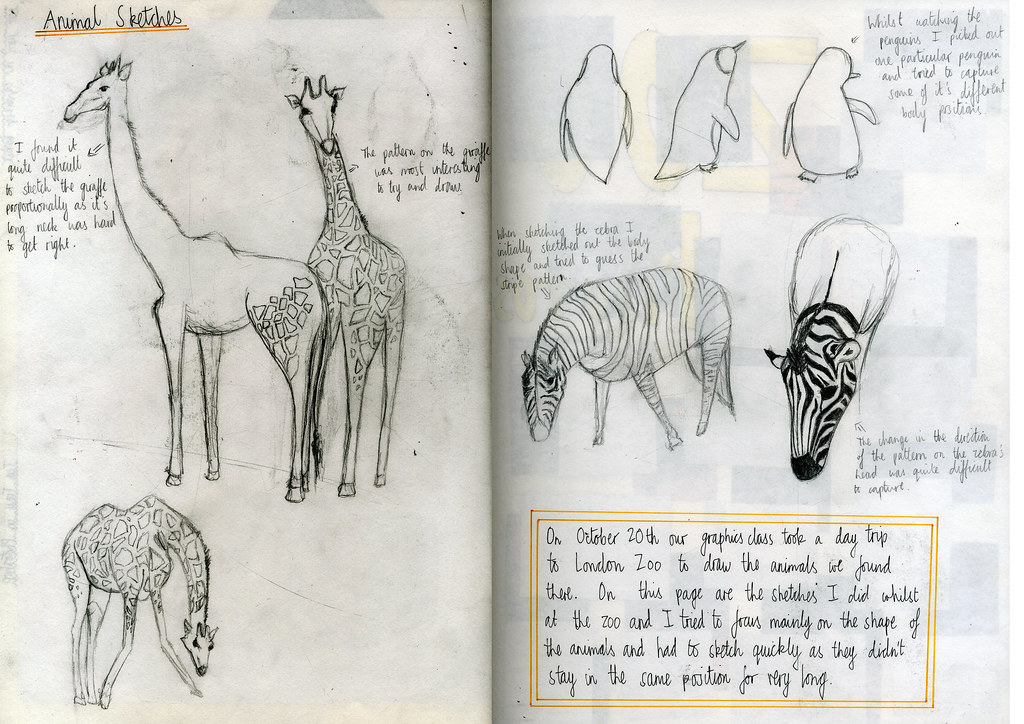 Animal Sketches
I found it
quite difficult
to sketch the giraffe
proportionally as it's
long neck was hard
to get right.
The pattern on the giraffe
was most interesting
to try and draw.
Whilst watching the
penguins I picked out
one particular penguin
and tried to capture
some of it's different
body positions.
When sketching the zebra I
initially sketched out the body
shape and tried to guess the
stripe pattern.
The change in the direction
of the pattern on the zebra's
head was quite difficult
to capture.
On October 20th our graphics class took a day trip
to London Zoo to draw the animals we found
there. On this page are the sketches I did whilst
at the zoo and I tried to focus mainly on the shape of
the animals and had to sketch quickly as they didn't
stay in the same position for very long.